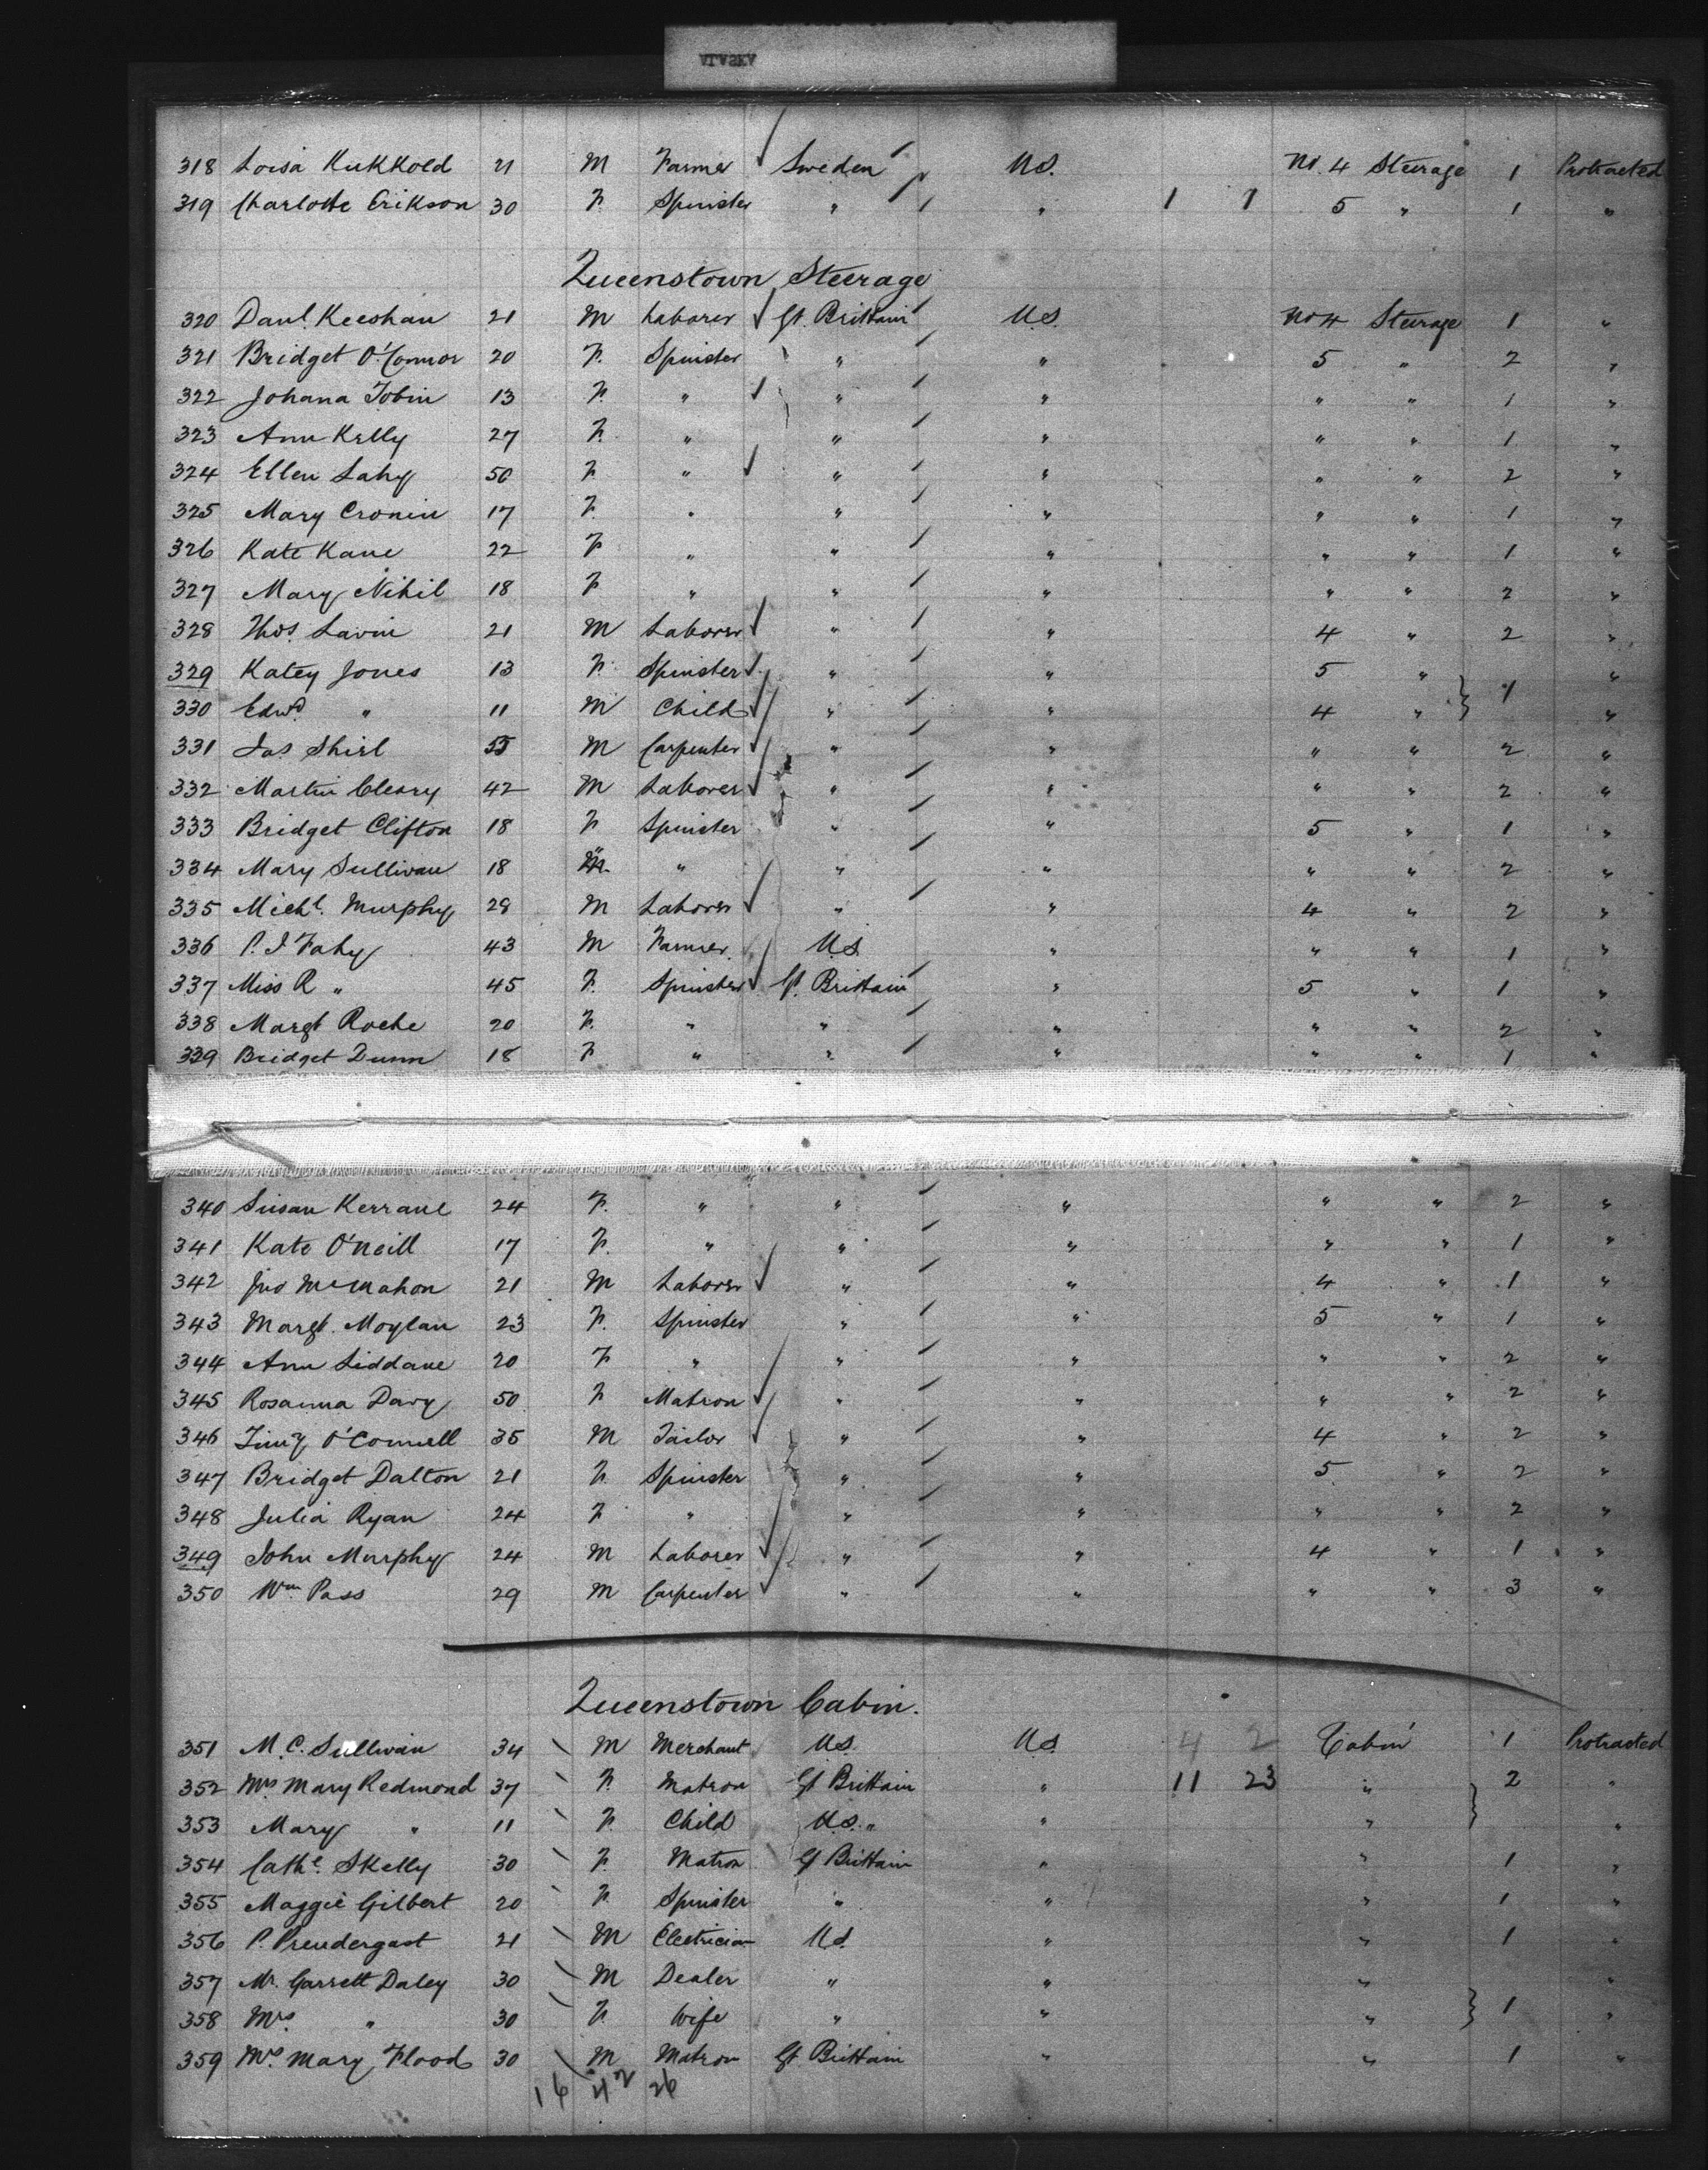 318 Loisa Kukkold 21 M Farmer Sweden U.S. No. 4 Steerage 1 Protracted
319 Charlotte Erikson 30 F. Spinster " " 1 1 5 " 1 "
Queenstown Steerage
320 Danl. Keeshan 21 M Laborer Gt. Brittain U.S. No 4 Steerage 1 "
321 Bridget O'Connor 20 F. Spinster " " 5 " 2 "
322 Johana Tobin 13 F. " " " " " 1 "
323 Ann Kelly 27 F. " " " " " 1 "
324 Ellen Lahy 50 F " " " " " 2 "
325 Mary Cronin 17 F. " " " " " 1 "
326 Kate Kane 22 F " " " " " 1 "
327 Mary Nihil 18 F " " " " " 2 "
328 Thos. Lavin 21 M Laborer " " 4 " 2 "
329 Katey Jones 13 F. Spinster " " 5 " } 1 "
330 Edwd. " 11 M Child " " 4 " "
331 Jas. Shirl 55 M Carpenter " " " " 2 "
332 Martin Cleary 42 M Laborer " " " " 2 "
333 Bridget Clifton 18 F Spinster " " 5 " 1 "
334 Mary Sullivan 18 " " " " " " 2 "
335 Michl. Murphy 28 M Laborer " " 4 " 2 "
336 P. J Fahy 43 M Farmer U.S. " " " 1 "
337 Miss R " 45 F. Spinster Gt. Brittain " 5 " 1 "
338 Margt Roche 20 F. " " " " " 2 "
339 Bridget Dunn 18 F " " " " " 1 "
340 Susan Kerrane 24 F. " " " " " 2 "
341 Kate O'Neill 17 F. " " " " " 1 "
342 Jno McMahon 21 M Laborer " " 4 " 1 "
343 Margt. Moylan 23 F. Spinster " " 5 " 1 "
344 Ann Liddane 20 F " " " " " 2 "
345 Rosanna Davy 50 F Matron " " " " 2 "
346 Timy O'Connell 35 M Tailor " " 4 " 2 "
347 Bridget Dalton 21 F. Spinster " " 5 " 2 "
348 Julia Ryan 24 F " " " " " 2 "
349 John Murphy 24 M Laborer " " 4 " 1 "
350 Wm Pass 29 M Carpenter " " " " 3 "
Queenstown Cabin.
351 M. C. Sullivan 34 M Merchant U.S. U.S. 4 2 Cabin 1 Protracted
352 Mrs. Mary Redmond 37 F. Matron Gt Brittain " 11 23 " } 2 "
353 Mary " 11 F. Child U.S. " " " "
354 Cathe. Skelly 30 F. Matron Gt Brittain " " 1 "
355 Maggie Gilbert 20 F. Spinster " " " 1 "
356 P. Prendergast 21 M Electrician U.S. " " 1 "
357 Mr. Garrett Daley 30 M Dealer " " " } 1 "
358 Mrs. " 30 F. Wife " " " "
359 Mrs. Mary Flood 30 M Matron Gt. Brittain " " 1 "
16 42 26